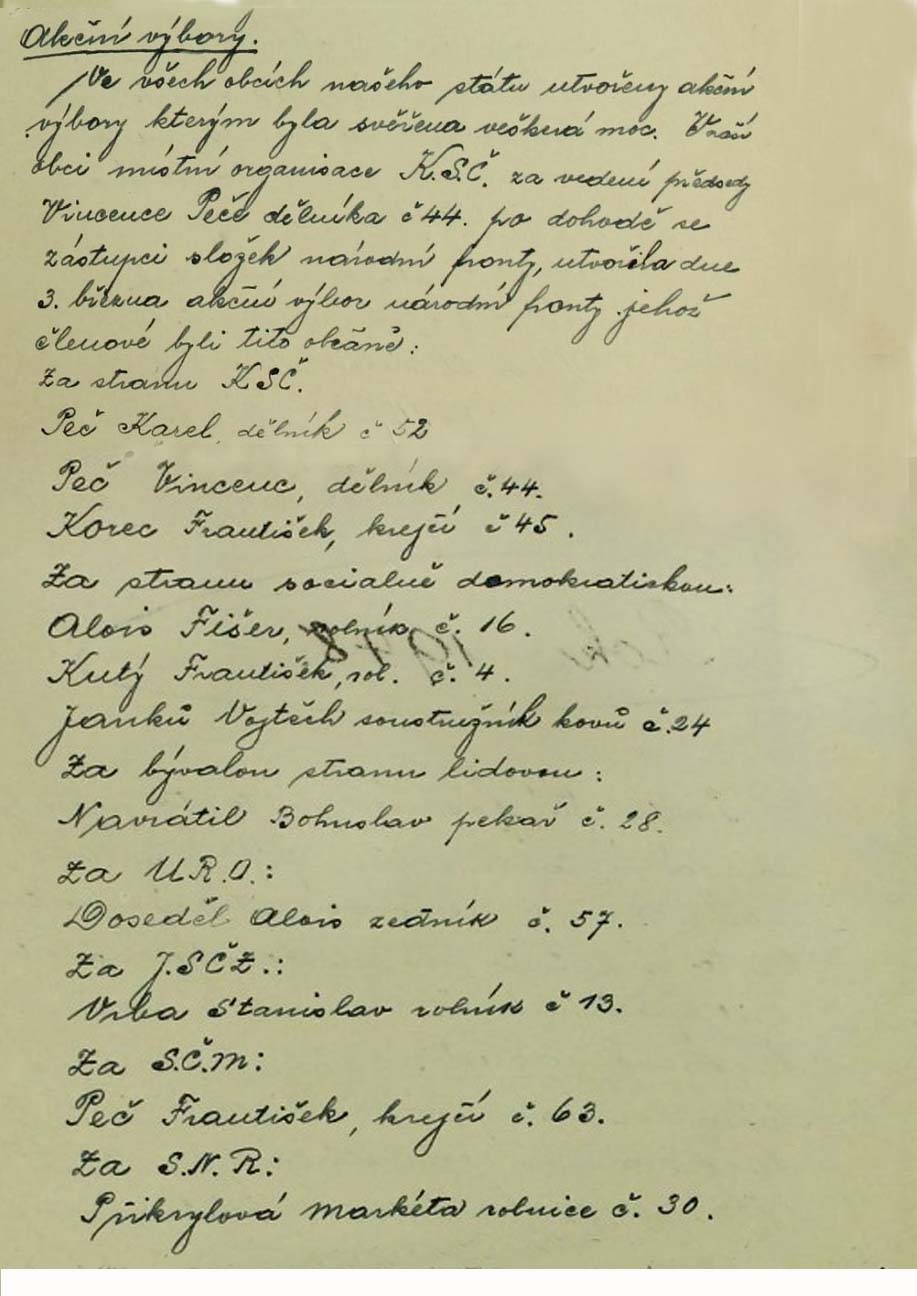 Akční výbory.
Ve všech obcích našeho státu utvořeny akční
výbory kterým byla svěřena veškerá moc. V naší
obci místní organisace K.S.Č. za vedení předsedy
Vincence Peče dělníka č 44. po dohodě se
zástupci složek národní fronty, utvořila dne
3. března akční výbor národní fronty jehož
členové byli tito občané:
Za stranu KSČ.
Peč Karel, dělník č 52
Peč Vincenc, dělník č. 44.
Korec František, krejčí č 45.
Za stranu socialně demokratickou:
Alois Fišer, rolník č. 16.
Kutý František, rol. č. 4.
Janků Vojtěch soustružník kovů č. 24
Za bývalou stranu lidovou:
Navrátil Bohuslav pekař č. 28.
Za U.R.O.:
Doseděl Alois zedník č. 57.
Za J.SČZ.:
Vrba Stanislav rolník č 13.
Za S.Č.M:
Peč František, krejčí č. 63.
Za S.N.R:
Přikrylová Markéta rolnice č. 30.